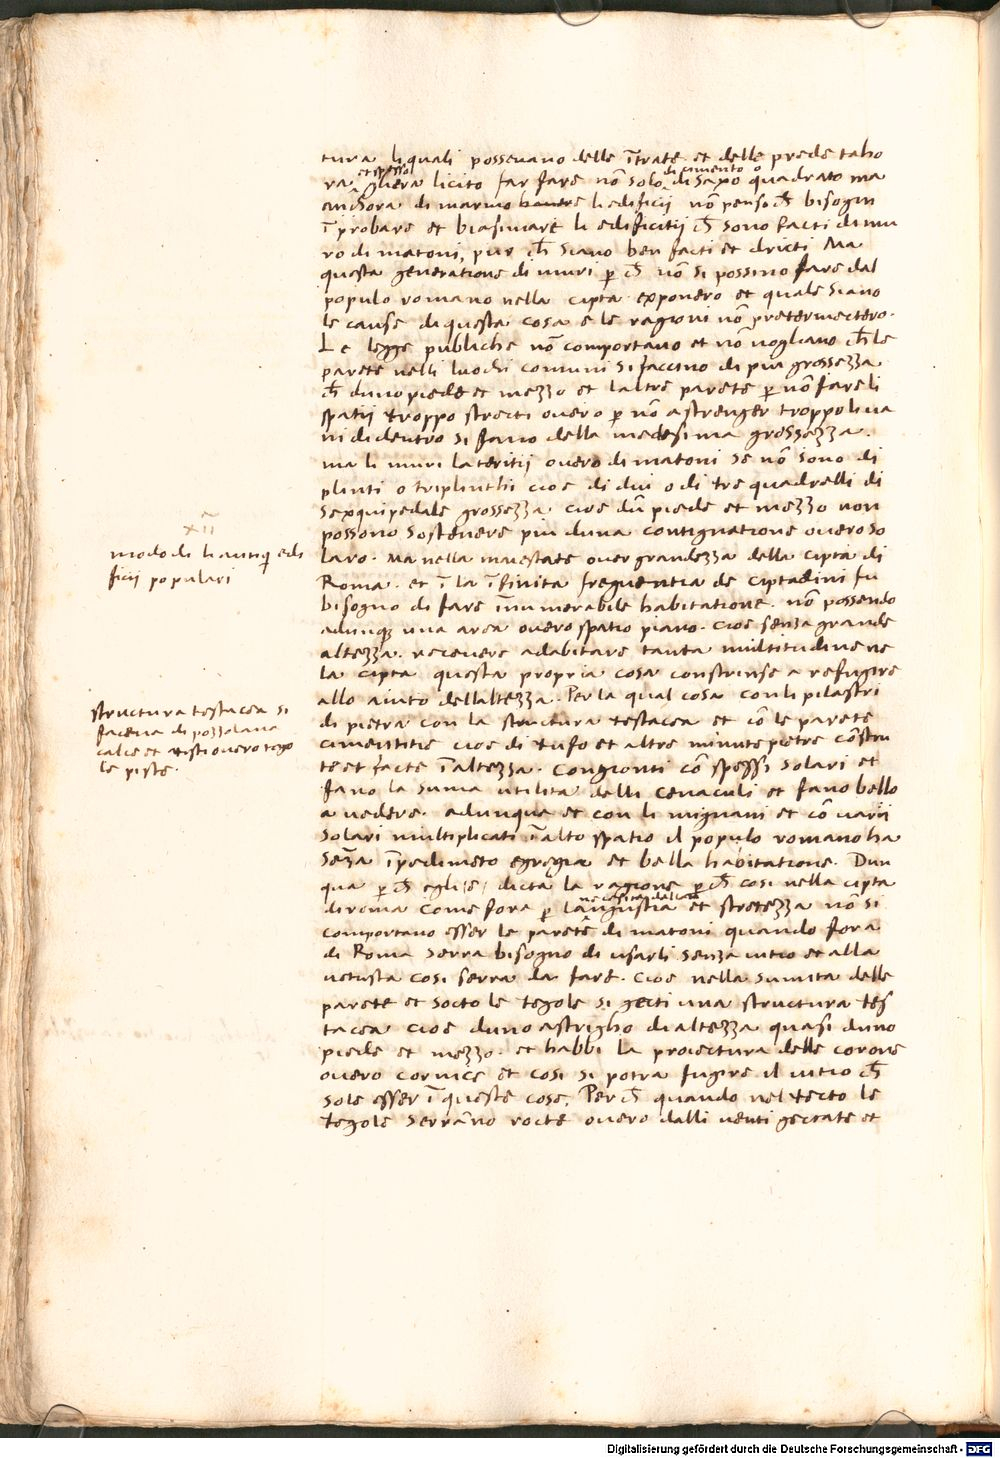 tura liquali possevano delle ītrate et delle prede taho
et spesso
di cimento o
ra glliera licito far fare nō solo di saxo quadrato ma
anchora di marmo havere li edificii nō penso ch̄ bisogni
īprobare et biasimare li edificitii ch̄ sono facti di mu
ro di matoni, pur ch̄ siano ben facti et dricti Ma
questa generatione di muri p ch̄ nō si possino fare dal
populo romano nella cipta exponero et quale siano
le cause di questa cosa e le ragioni nō pretermectero.
Le legge publiche nō comportano et nō vogliano ch̄ le
parete nelli luochi comuni si faccino di piu grossezza
ch̄ duno piede et mezzo et laltre parete p nō fare li
spatii troppo strecti overo p nō astrenger troppo li va
ni di dentro si fano della medesima grossezza.
ma li muri lateritii overo di matoni se nō sono di
plinti o triplinthi cioe di dui o di tre quadrelli di
sexquipedale grossezza cioe dū piede et mezzo non
possono sostenere piu duna contignatione overo so
laro. Ma nella maiestate over grandezza della cipta di
Roma. et ī la īfinita frequentia de ciptadini fu
bisogno di fare īnumerabile habitatione. nō possendo
adunque una area overo spatio piano. cioe senza grande
altezza. recevere adabitare tanta multitudine ne
la cipta questa propria cosa constrinse a refugire
allo aiuto dellaltezza. Per la qual cosa con li pilastri
di pietra con la structura testacea et cō le parete
cimentitie cioe di tufo et altre minute pietre cōstru
te et facte ī altezza. congionti cō spessi solari et
fano la suma utilita delli cenaculi et fano bello
a vedere. adunque et con li mignani et cō varii
solari multiplicati ī alto spatio il populo romano ha
senza īpedimēto egregia et bella habitatione. Dun
qua p ch̄ egli e dicta la ragione p ch̄ cosi nella cipta
di roma come fora p langustia et stretezza nō si
comportano esser le parete di matoni quando fora
di Roma serra bisogno di usarli senza vitio et alla
vetusta cosi serra da fare. cioe nella sumita delle
parete et socto le tegole si gecti una structura tes
tacea cioe duno astrigho di altezza quasi duno
piede et mezzo. et habbi la proiectura delle corone
overo cornice et cosi si potra fugire il vitio ch̄
sole esser ī queste cose. Per ch̄ quando nel tecto le
tegole serranno rocte overo dalli venti gectate et
XII
modo di li edi
ficii populari
structura testacea si
faceva di pozzolana
calce et testi overo tego
le piste.
Digitalisierung gefördert durch die Deutsche Forschungsgemeinschaft - DFG